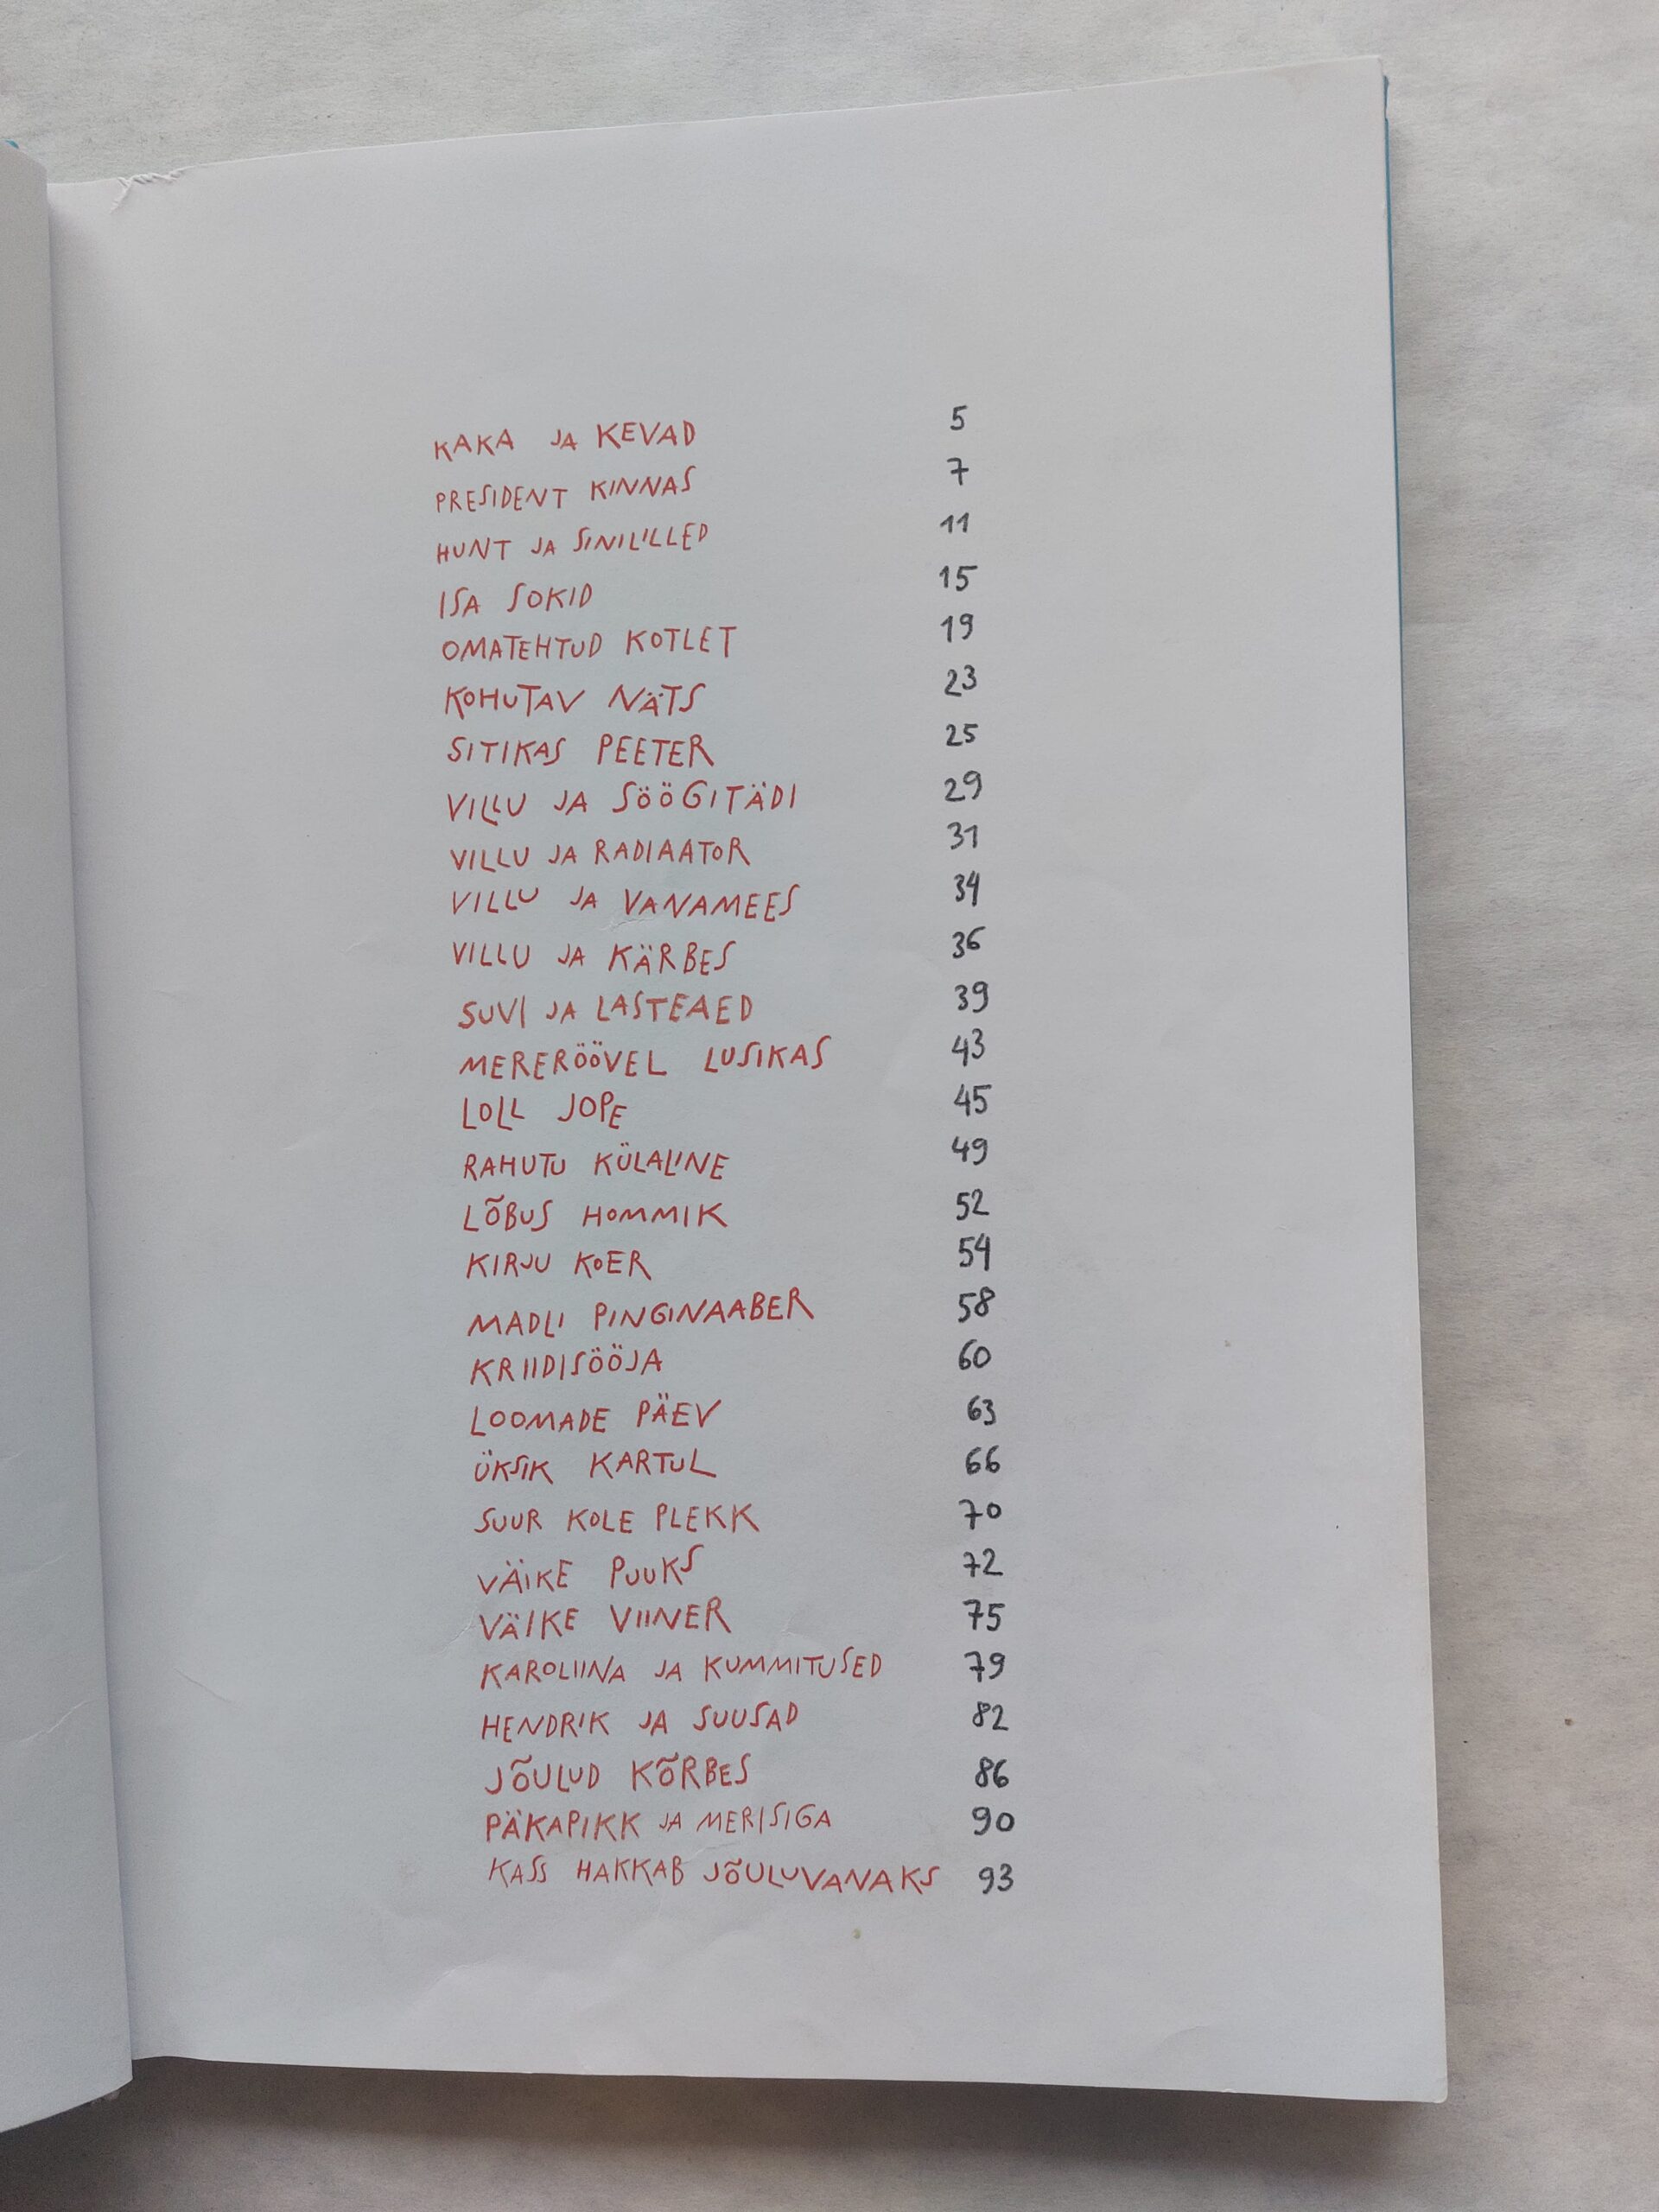 KAKA JA KEVAD 5
PRESIDENT KINNAS 7
HUNT JA SINILILLED 11
ISA SOKID 15
OMATEHTUD KOTLET 19
KOHUTAV NÄTS 23
SITIKAS PEETER 25
VILLU JA SÖÖGITÄDI 29
VILLU JA RADIAATOR 31
VILLU JA VANAMEES 34
VILLU JA KÄRBES 36
SUVI JA LASTEAED 39
MERERÖÖVEL LUSIKAS 43
LOLL JOPE 45
RAHUTU KÜLALINE 49
LÕBUS HOMMIK 52
KIRJU KOER 54
MADLI PINGINAABER 58
KRIIDISÖÖJA 60
LOOMADE PÄEV 63
ÜKSIK KARTUL 66
SUUR KOLE PLEKK 70
VÄIKE PUUKS 72
VÄIKE VIINER 75
KAROLIINA JA KUMMITUSED 79
HENDRIK JA SUUSAD 82
JÕULUD KÕRBES 86
PÄKAPIKK JA MERISIGA 90
KASS HAKKAB JÕULUVANAKS 93